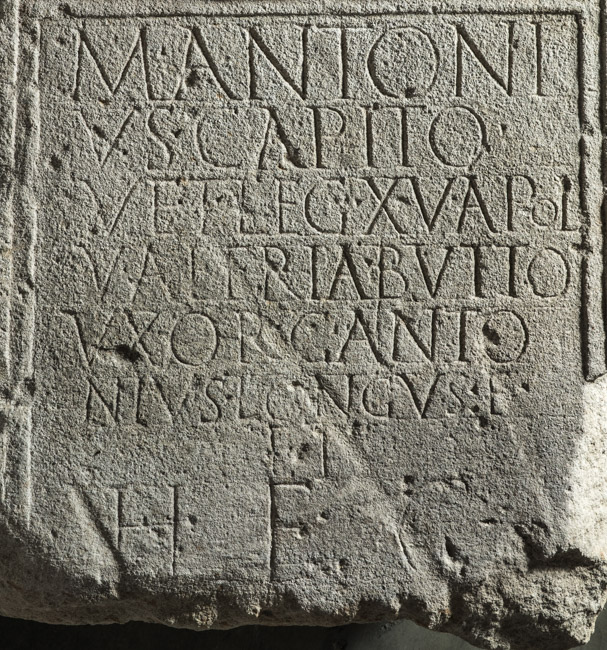 MANTONI
VS CAPITO
VET LEG XV APOL
VALERIA BVTIO
VXOR C ANTO
NIVS LONGVS F
H F C